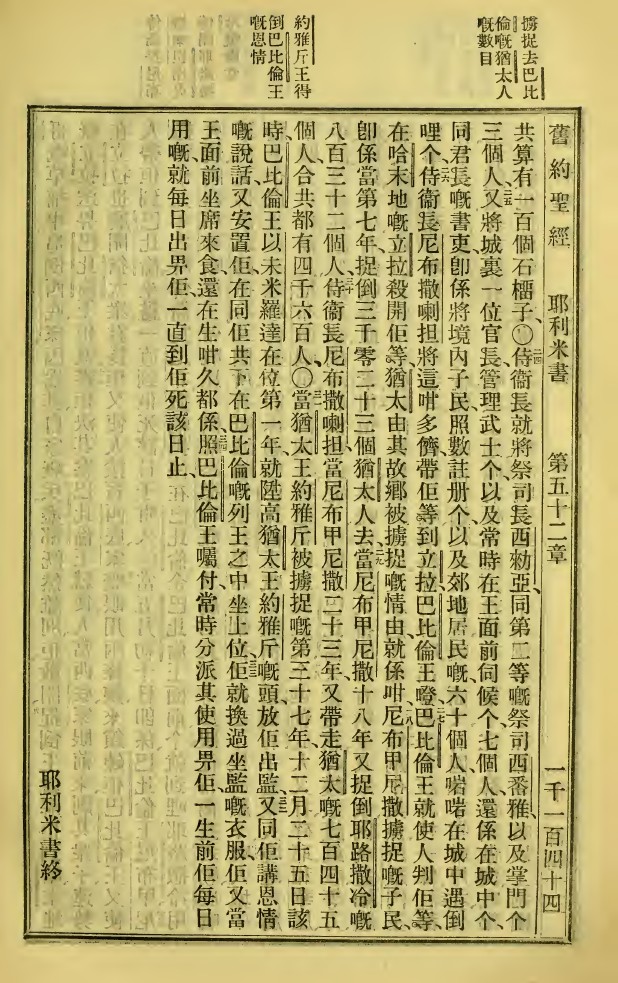 擄捉去巴比
倫嘅猶太人
嘅數目
約雅斤王得
倒巴比倫王
嘅恩情
舊約聖經 耶利米書 第五十二章 一千一百四十四
共算有一百個石榴子、〇侍衞長就將祭司長西勑亞、同第二等嘅祭司西番雅、以及掌門个
三個人、又將城裏一位官長、管理武士个、以及常時在王面前伺候个七個人、還係在城中个、
同君長嘅書吏、卽係將境內子民照數註册个、以及郊地居民嘅六十個人、啱啱在城中遇倒
哩个、侍衞長尼布撒喇担將這咁多儕帶佢等到立拉巴比倫王嶝、巴比倫王就使人判佢等、
在哈末地嘅立拉殺開佢等、猶太由其故鄉被擄捉嘅情由就係咁、尼布甲尼撒擄捉嘅子民、
卽係當第七年、捉倒三千零二十三個猶太人去、當尼布甲尼撒十八年、又捉倒耶路撒冷嘅
八百三十二個人、侍衞長尼布撒喇担當尼布甲尼撒二十三年、又帶走猶太嘅七百四十五
個人、合共都有四千六百人、〇當猶太王約雅斤被擄捉嘅第三十七年十二月二十五日、該
時巴比倫王以未米羅達在位第一年、就陞高猶太王約雅斤嘅頭、放佢出監、又同佢講恩情
嘅說話、又安置佢在同佢共下在巴比倫嘅列王之中坐上位、佢就換過坐監嘅衣服、佢又當
王面前坐席來食、還在生咁久都係、照巴比倫王囑付、常時分派其使用畀佢、一生前佢每日
用嘅、就每日出畀佢、一直到佢死該日止、
耶利米書終